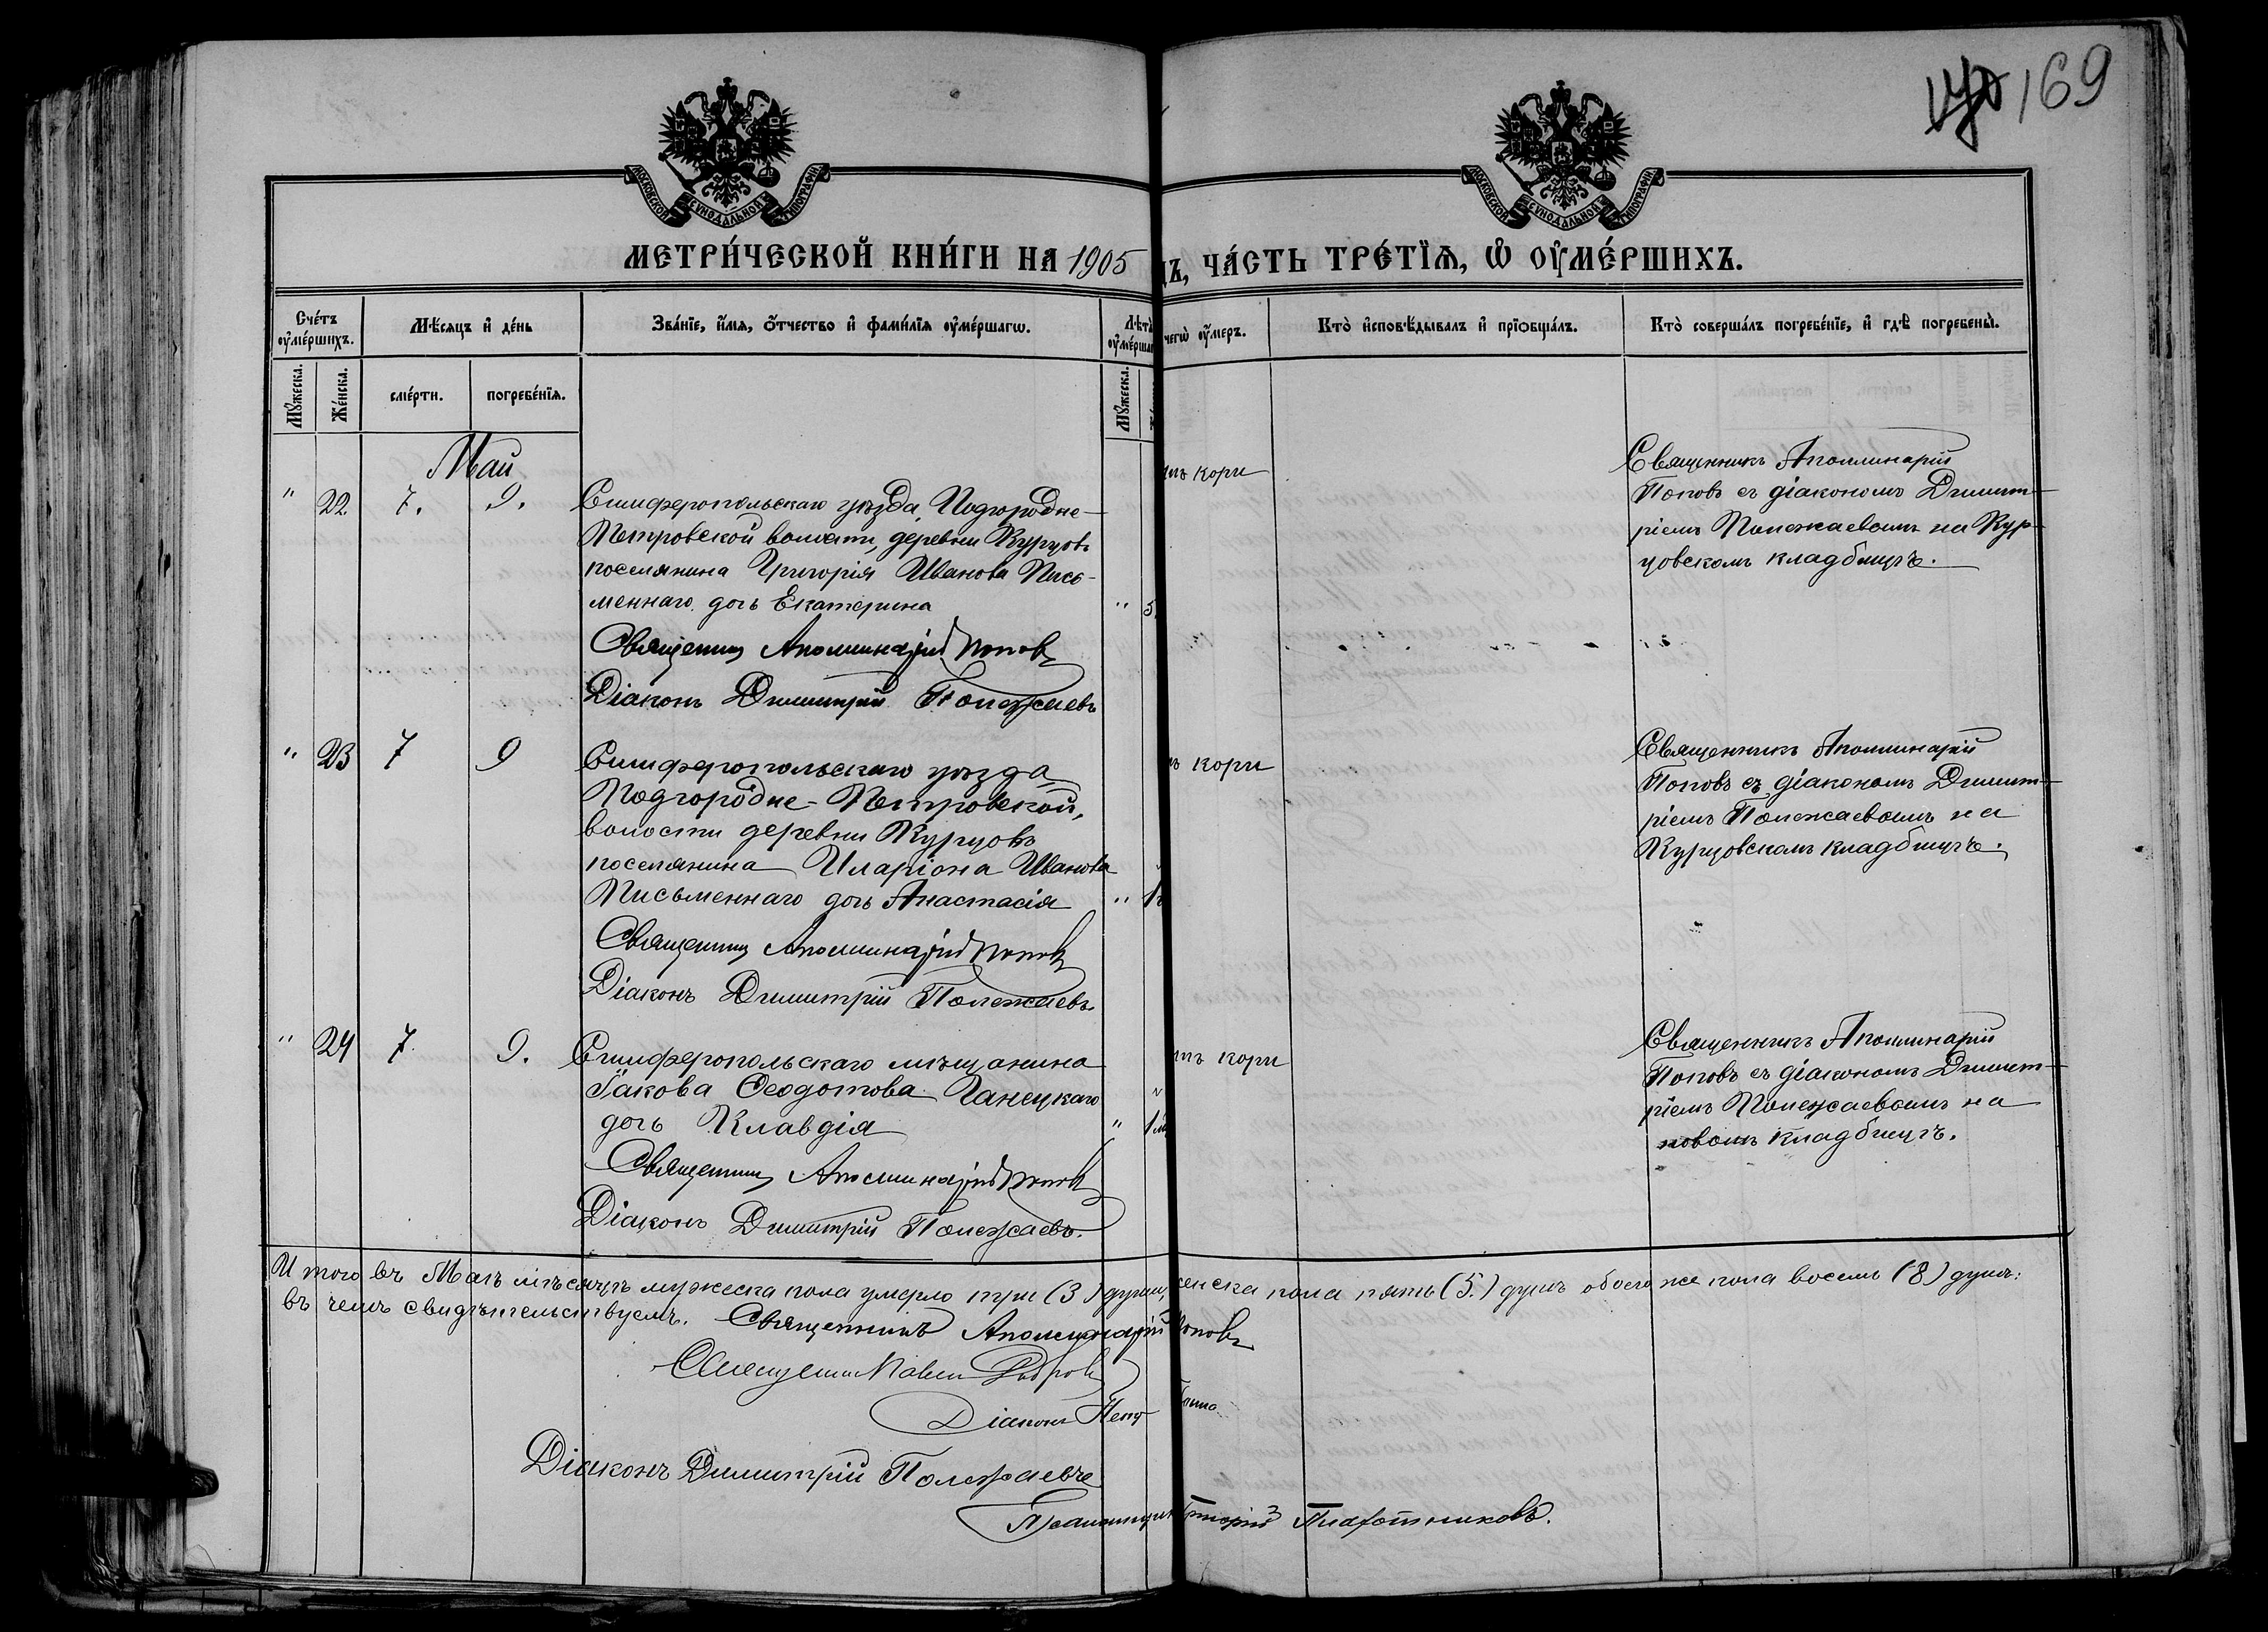 169
МОСКОВСКОЙ СѴНОДАЛЬНОЙ ТИПОГРАФІИ
МОСКОВСКОЙ СѴНОДАЛЬНОЙ ТИПОГРАФІИ
МЕТРИ́ЧЕСКОЙ КНИ́ГИ НА 1905
ДЪ, ЧА́СТЬ ТРЕ́ТЇѦ, Ѡ ОУ҆МЕ́РШИХЪ.
Сче́тъ оу҆ме́ршихъ.
Мѣсяцъ и҆ де́нь
Зва́нїе, и҆́мѧ, ѻ҆́тчество и҆ фами́лїѧ оу҆ме́ршагѡ.
Лѣта̀ оу҆ме́ршаг
чегѡ̀ оу҆́меръ.
Кто̀ и҆сповѣ́дывалъ и҆ прїѻбща́лъ.
Кто̀ соверша́лъ погребе́нїе, и҆ гдѣ̀ погребены̀.
Мꙋ́жеска.
Же́нска.
сме́рти.
погребе́нїѧ.
Мꙋ́жеска.
Май
" 22 7. 9.
Симферопольскаго уѣзда, Подгородне-
Петровской волости, деревни Курцовъ
поселянина Григорія Иванова Пись-
меннаго дочь Екатерина " 5
Священникъ Аполлинарій Поповъ
Діаконъ Димитрій Полежаевъ
кори
Священникъ Аполлинарій
Поповъ съ діакономъ Димит-
ріемъ Полежаевымъ на Кур-
цовскомъ кладбищѣ.
" 23 7 9
Симферопольскаго уѣзда
Подгородне-Петровской,
волости деревни Курцовъ
поселянина Иларіона Иванова
Письменнаго дочь Анастасія " 1
Священникъ Аполлинарій Поповъ
Діаконъ Димитрій Полежаевъ
кори
Священникъ Аполлинарій
Поповъ съ діакономъ Димит-
ріемъ Полежаевымъ на
Курцовскомъ кладбищѣ.
" 24 7. 9.
Симферопольскаго мѣщанина
Іакова Ѳеодотова Ганецкаго
дочь Клавдія " 1 м
Священникъ Аполлинарій Поповъ
Діаконъ Димитрій Полежаевъ.
кори
Священникъ Аполлинарій
Поповъ съ діакономъ Димит-
ріемъ Полежаевымъ на
новомъ кладбищѣ.
Итого въ Маѣ мѣсяцѣ мужеска пола умерло три (3) души, женска пола пять (5.) душъ обоего же пола восемь (8) душъ:
въ чемъ свидѣтельствуемъ. Священникъ Аполлинарій Поповъ
Священникъ Павелъ
Діаконъ
Діаконъ Димитрій Полежаевъ
Псаломщикъ Григорій Плахотниковъ.